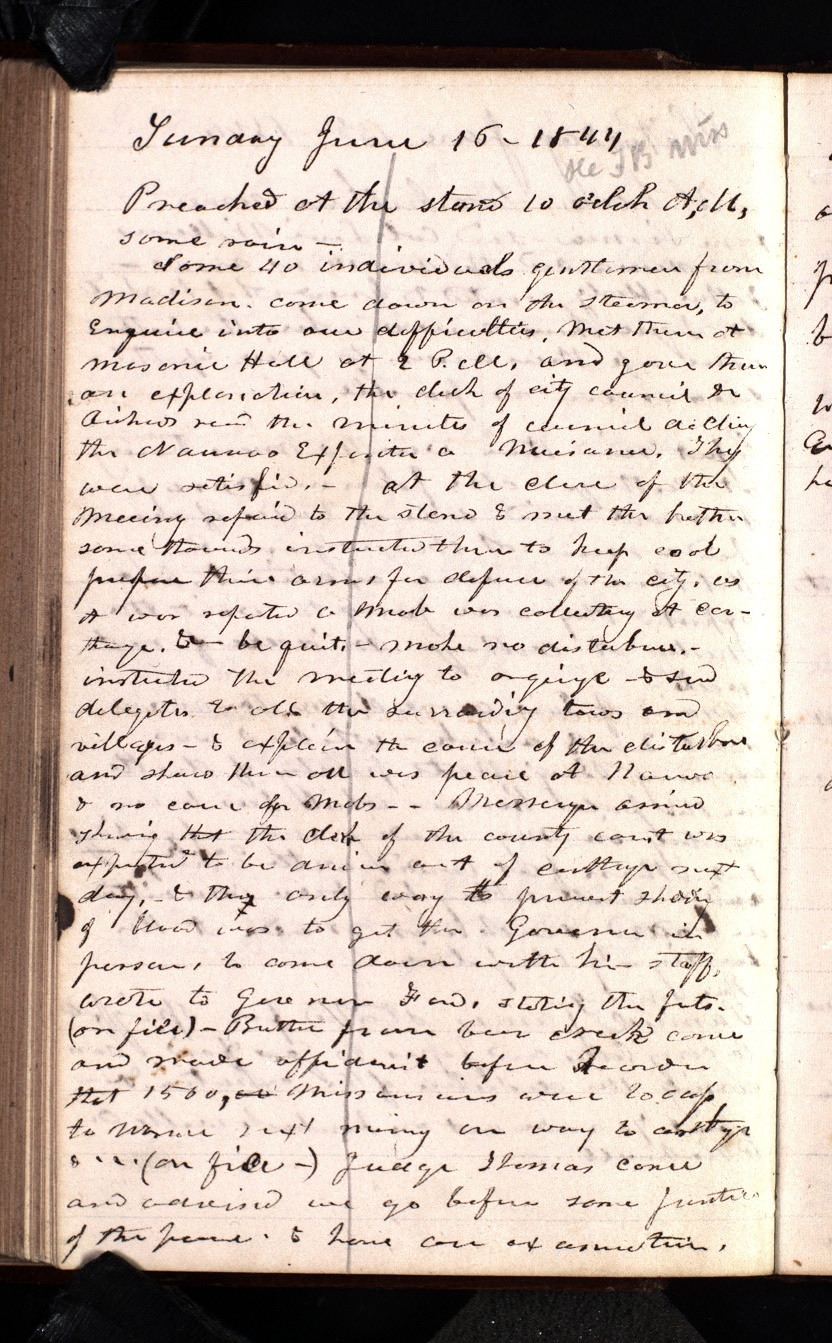 Sunday June 16 - 1844
Preached at the stand 10 oclok A,M,
some rain -
Some 40 individuals gentlemen from
Madison. come down on the steamer, to
Enquire into our difficulties, Met them at
masonic Hall at 2 P.M. and gave them
an explanation, the clerk of city council Dr
Richards read the minutes of council declaing
the Nauvoo Expositer a Nuisance. They
were satisfid. - at the close of the
Meeing repaid to the stand & met the brethn
some thousands instructed them to keep cool
prepare their arms for defence of the city, as
it was repoted a Mob was collecting at car-
thage. & be quit. - make no disturbnce. -
instructed the meeting to organize - & send
delegates to all the surrounding towns and
villages - & explain the cause of the disturbnce
and show them all was peace at Nauvoo
& no cause for Mobs - - Messenger arrived
stating that the clerk of the county court was
expected to be driven out of carthage next
day, - & the only way to prevent sheding
of blood was to get the Governor in
person, to come down with his staff,
wrote to Governor Ford, stating the facts.
(on file) - Butler from bear creek came
and made affidavit before Recorder
that 1500, Missourians were to cross
to Warsaw next moning on way to carthage
(on file -) Judge Thomas come
and advised we go before some Justice
of the peace. & have an examination,